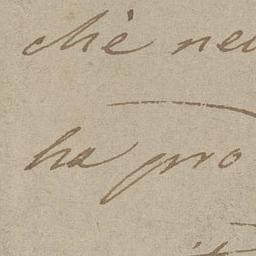 chiè nel
ha pro